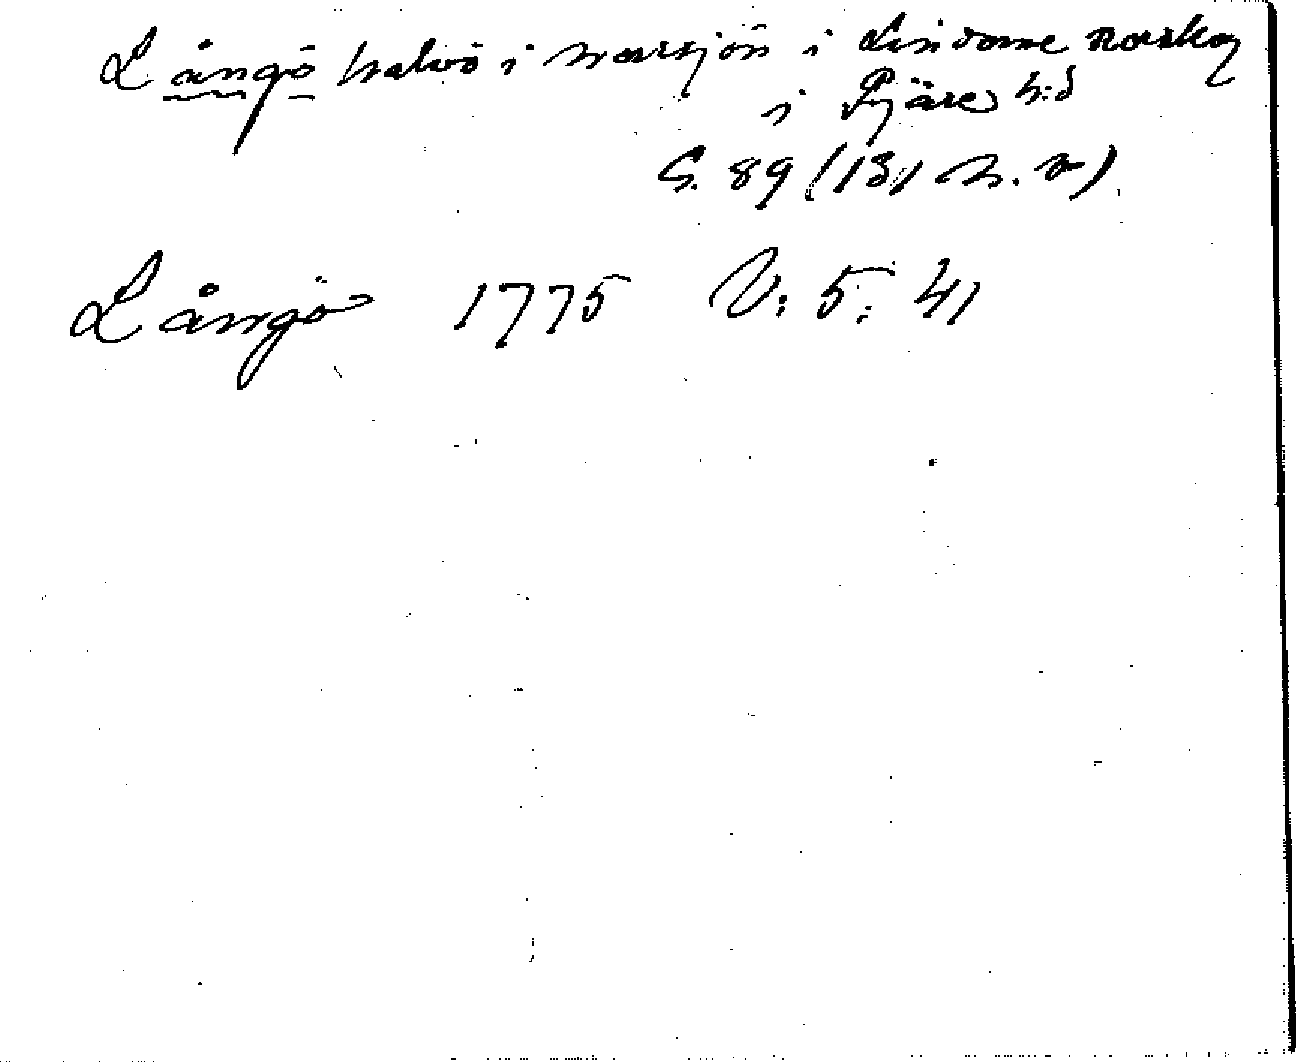 Långö halvö i norsjön i Lindome socken
i Fjäre h:d
S. 89 (131 n. v)
Långö 1775 V: 5: 41